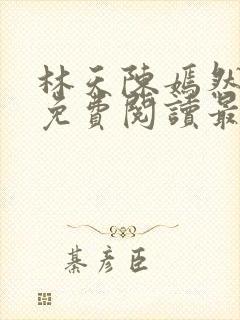 林天陈嫣然
免費閱讀最
綦彦臣